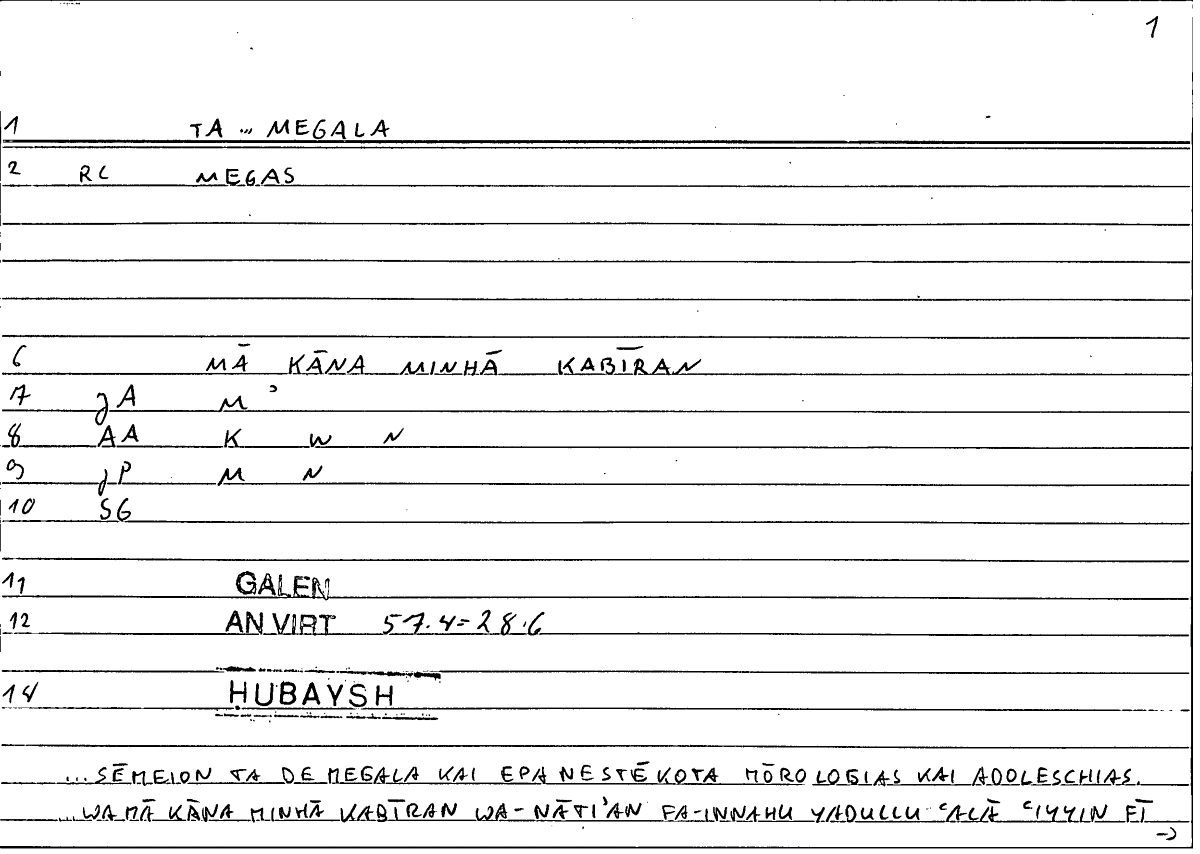 1
1 TA ... MEGALA
2 RC MEGAS
6 MĀ KĀNA MINHĀ KABĪRAN
7 JA M ʾ
8 AA K W N
9 JP M N
10 SG
11 GALEN
12 AN VIRT 57.4=28.6
14 ḤUBAYSH
...SĒMEION TA DE MEGALA KAI EPANESTĒKOTA MŌROLOGIAS KAI ADOLESCHIAS.
...WA MĀ KĀNA MINHĀ KABĪRAN WA-NĀTIʾAN FA-INNAHU YADULLU ʿALĀ ʿIYYIN FĪ
->